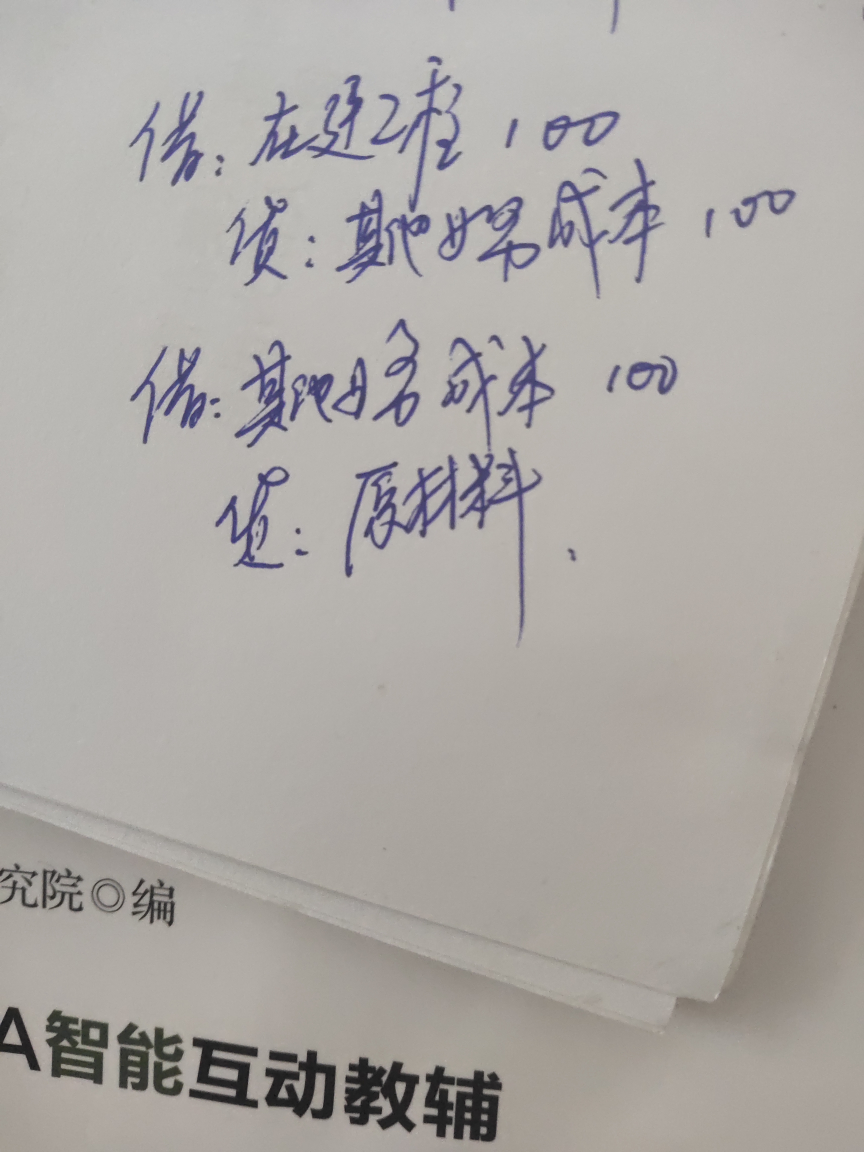 借：在建工程 100
贷：其他业务成本 100
借：其他业务成本 100
贷：原材料．
究院◎编
A智能互动教辅